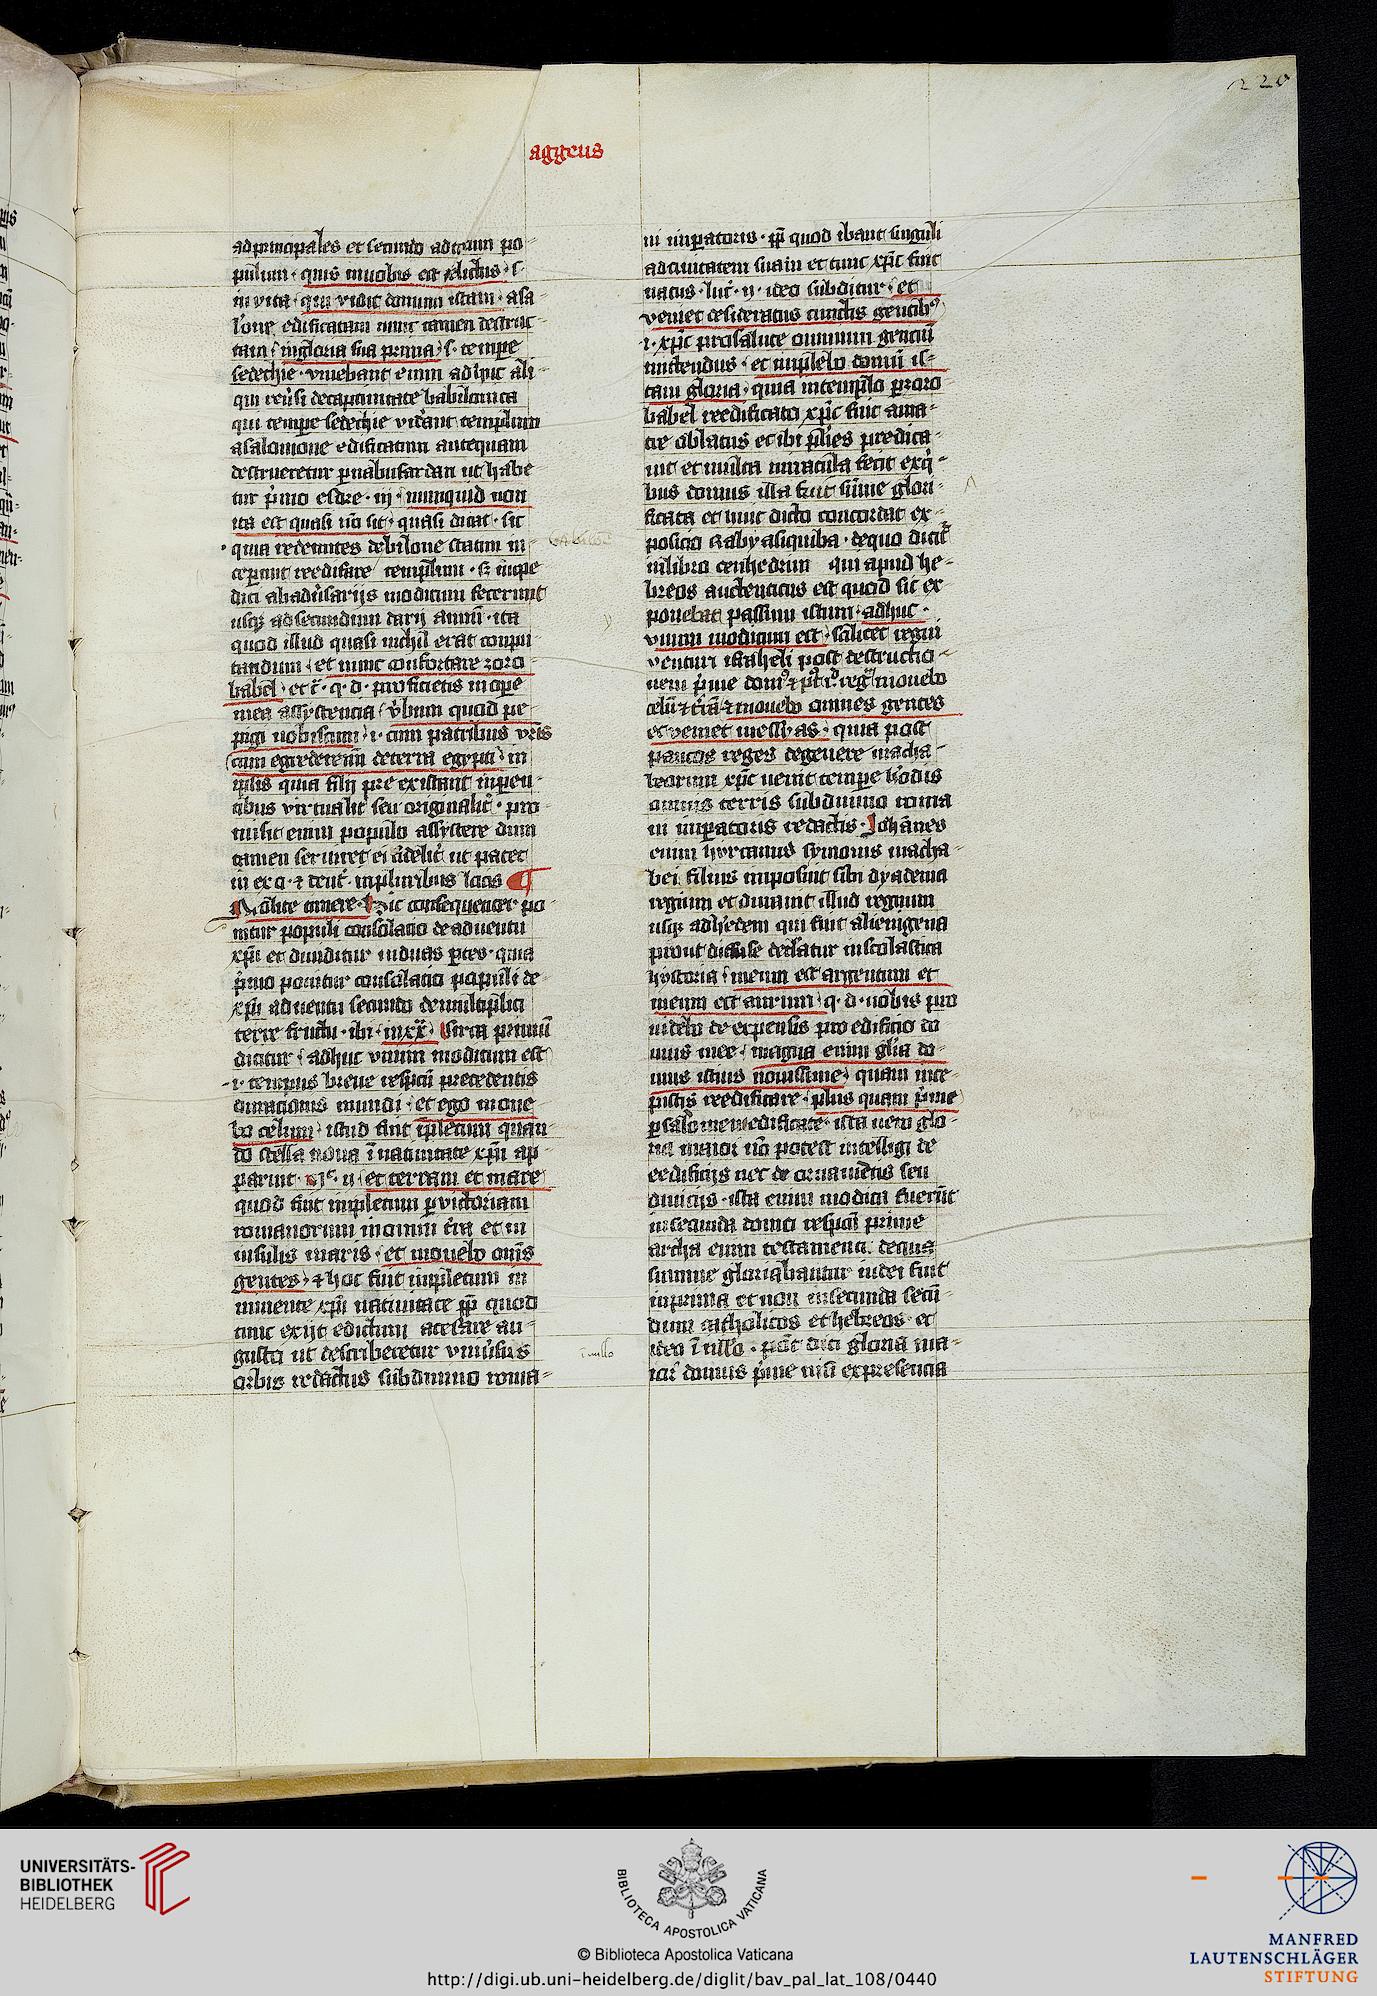 220
aggeus
ad principales et secundo ad totum po-
pulum · quis in vobis est relictus · s·
in vita · qui vidit domum istam · a sa-
lōne edificatam nunc tamen destruc-
tam · in gloria sua prima · s· tempe
sedechie · vivebant enim adhuc ali-
qui reũsi de captivitate babilonica
qui tempe sedechie viderant templum
a salomone edificatum antequam
destrueretur p nabusardan ut habe
tur p̃mo esdre · iij · nunquid non
ita est quasi nō sit · quasi dicat · sic
quia redeuntes de bilone statim in-
ceperunt reedificare templum · s; impe
diti ab adũsarijs modicum fecerunt
usq; ad secundum darij annū · ita
quod illud quasi nichil erat compu-
tandum · et nunc confortare zoro-
babel · et c̃ · q · d · proficietis in ope
mea assystencia · v̓bum quod pe-
pigi vobiscum · i · cum patribus vr̃is
cum egrederemini de terra egypti · in
ip̃is quia filij pre existunt in paren-
tibus virtualit̓ seu originalit̓ · pro-
misit enim populo assystere dum
tamen serviret ei fidelit̓ ut patet
in exo · ⁊ deut̓ · in pluribus locis ¶
Nolite timere · hic consequenter po-
nitur populi consolatio de adventu
xp̃i et dividitur in duas p̃tes · quia
p̃mo ponitur consolatio populi de
xp̃i adventu secundo de multiplici
terre fructu · ibi · in xx̃ · Circa primū
dicitur · adhuc unum modicum est
· i · tempus breve respcū precedentis
durationis mundi · et ego move-
bo celum · istud fuit ip̃letum quan-
do stella nova ĩ nativitate xp̃i ap-
paruit · et terram et mare
quod fuit impletum p victoriam
romanorum in omni t̃ra et in
insulis maris · et movebo om̃s
gentes · ⁊ hoc fuit impletum in
iminente xp̃i nativitate pp̃ quod
tunc exijt edictum a cesare au-
gusto ut describeretur univ̓sus
orbis redactus sub dominio roma-
ni imperatoris · pp̃ quod ibant singuli
ad civitatem suam et tunc xp̃c fuit
natus · luc̃ · ij · ideo subditur · et
veniet desideratus cunctis gentib9
· i · xp̃c pro salute omnium gentiū
mittendus · et implebo domū is-
tam gloria · quia in templo p zoro-
babel reedificato xp̃c fuit a ma-
tre oblatus et ibi p̃lies predica-
vit et multa miracula fecit ex q̓-
bus domus illa fuit sūme glori-
ficata et huic dicto concordat ex-
positio Raby asiquiba · de quo dicit̓
in libro cenhedrin qui apud he-
breos autenticus est quod sic ex
ponebat passum istum · adhuc ·
unum modicum est · scilicet regni
venturi israheli post destructio-
nem p̃me dom9
celū ⁊ t̃rā ⁊ movebo omnes gentes
et veniet messyas · quia post
paucos reges de genere macha-
beorum xp̃c venit tempe h̓odis
omnis terris sub dominio roma
ni imperatoris redactis · Johānes
enim hyrcanus symonis macha-
bei filius imposuit sibi dyadema
regium et duravit istud regnum
usq; ad h̓edem qui fuit alienigena
prout diffuse declatur in scolastica
hystoria · meum est argentum et
meum est aurum · q · d · vobis pro
videbo de expensis pro edificio do
mus mee · magna enim gl̃ia do-
mus istius novissime · quam ince-
pistis reedificare · plus quam p̃me
p salomonem edificate · ista vero glo-
ria maior nō potest intelligi de
edificijs nec de ornamentis seu
divicijs · ista enim modica fuerūt
in secunda domo respcū prime
archa enim testamenti de qua
summe gloriabantur iudei fuit
in prima et non in secunda secū-
dum catholicos et hebreos et
ideo ĩ nullo · pōt dici gloria ma-
ior domus p̃me nisi ex presencia
ĩ nullo
UNIVERSITÄTS-
BIBLIOTHEK
HEIDELBERG
BIBLIOTECA APOSTOLICA VATICANA
© Biblioteca Apostolica Vaticana
http://digi.ub.uni-heidelberg.de/diglit/bav_pal_lat_108/0440
MANFRED
LAUTENSCHLÄGER
STIFTUNG